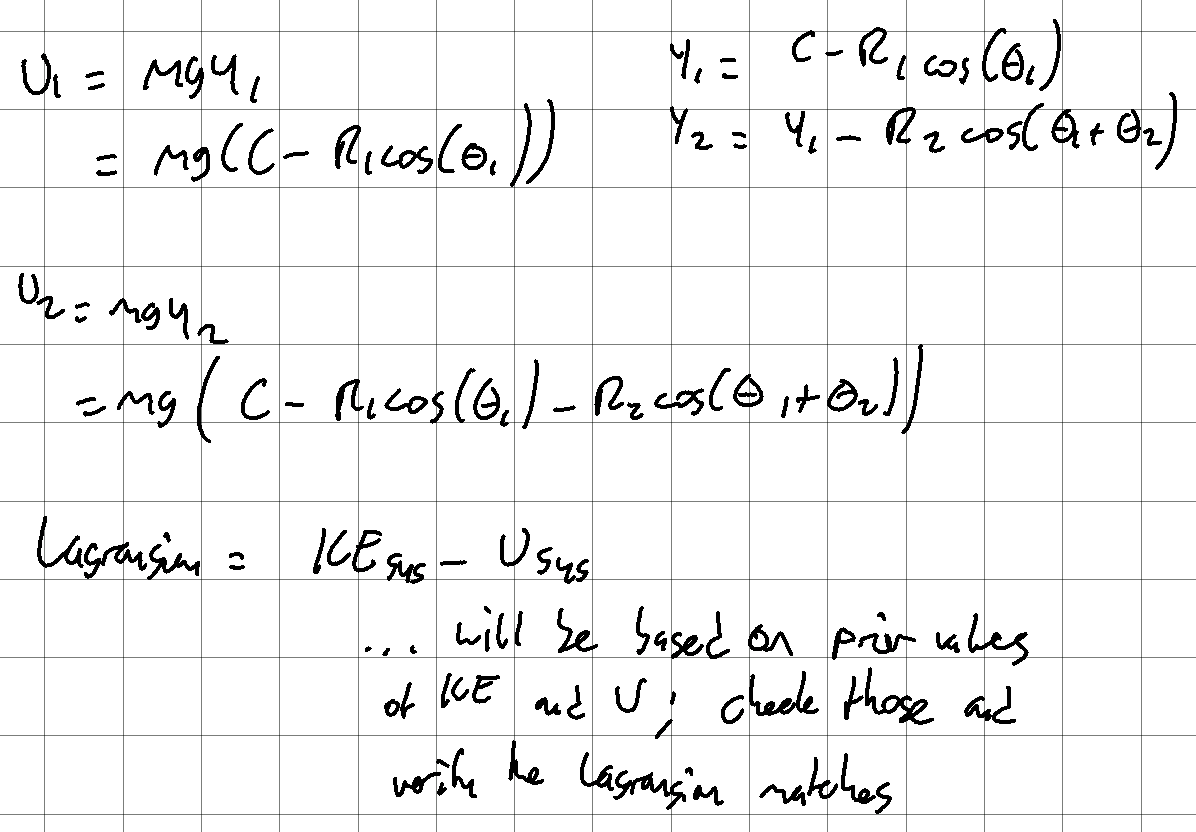 U₁ = mgy₁
= mg(C - R₁cos(θ₁))
y₁ = C - R₁cos(θ₁)
y₂ = y₁ - R₂cos(θ₁+θ₂)
U₂ = mgy₂
= mg(C - R₁cos(θ₁) - R₂cos(θ₁+θ₂))
Lagrangian = KEsys - Usys
... will be based on prior values
of KE and U; check those and
verify the Lagrangian matches